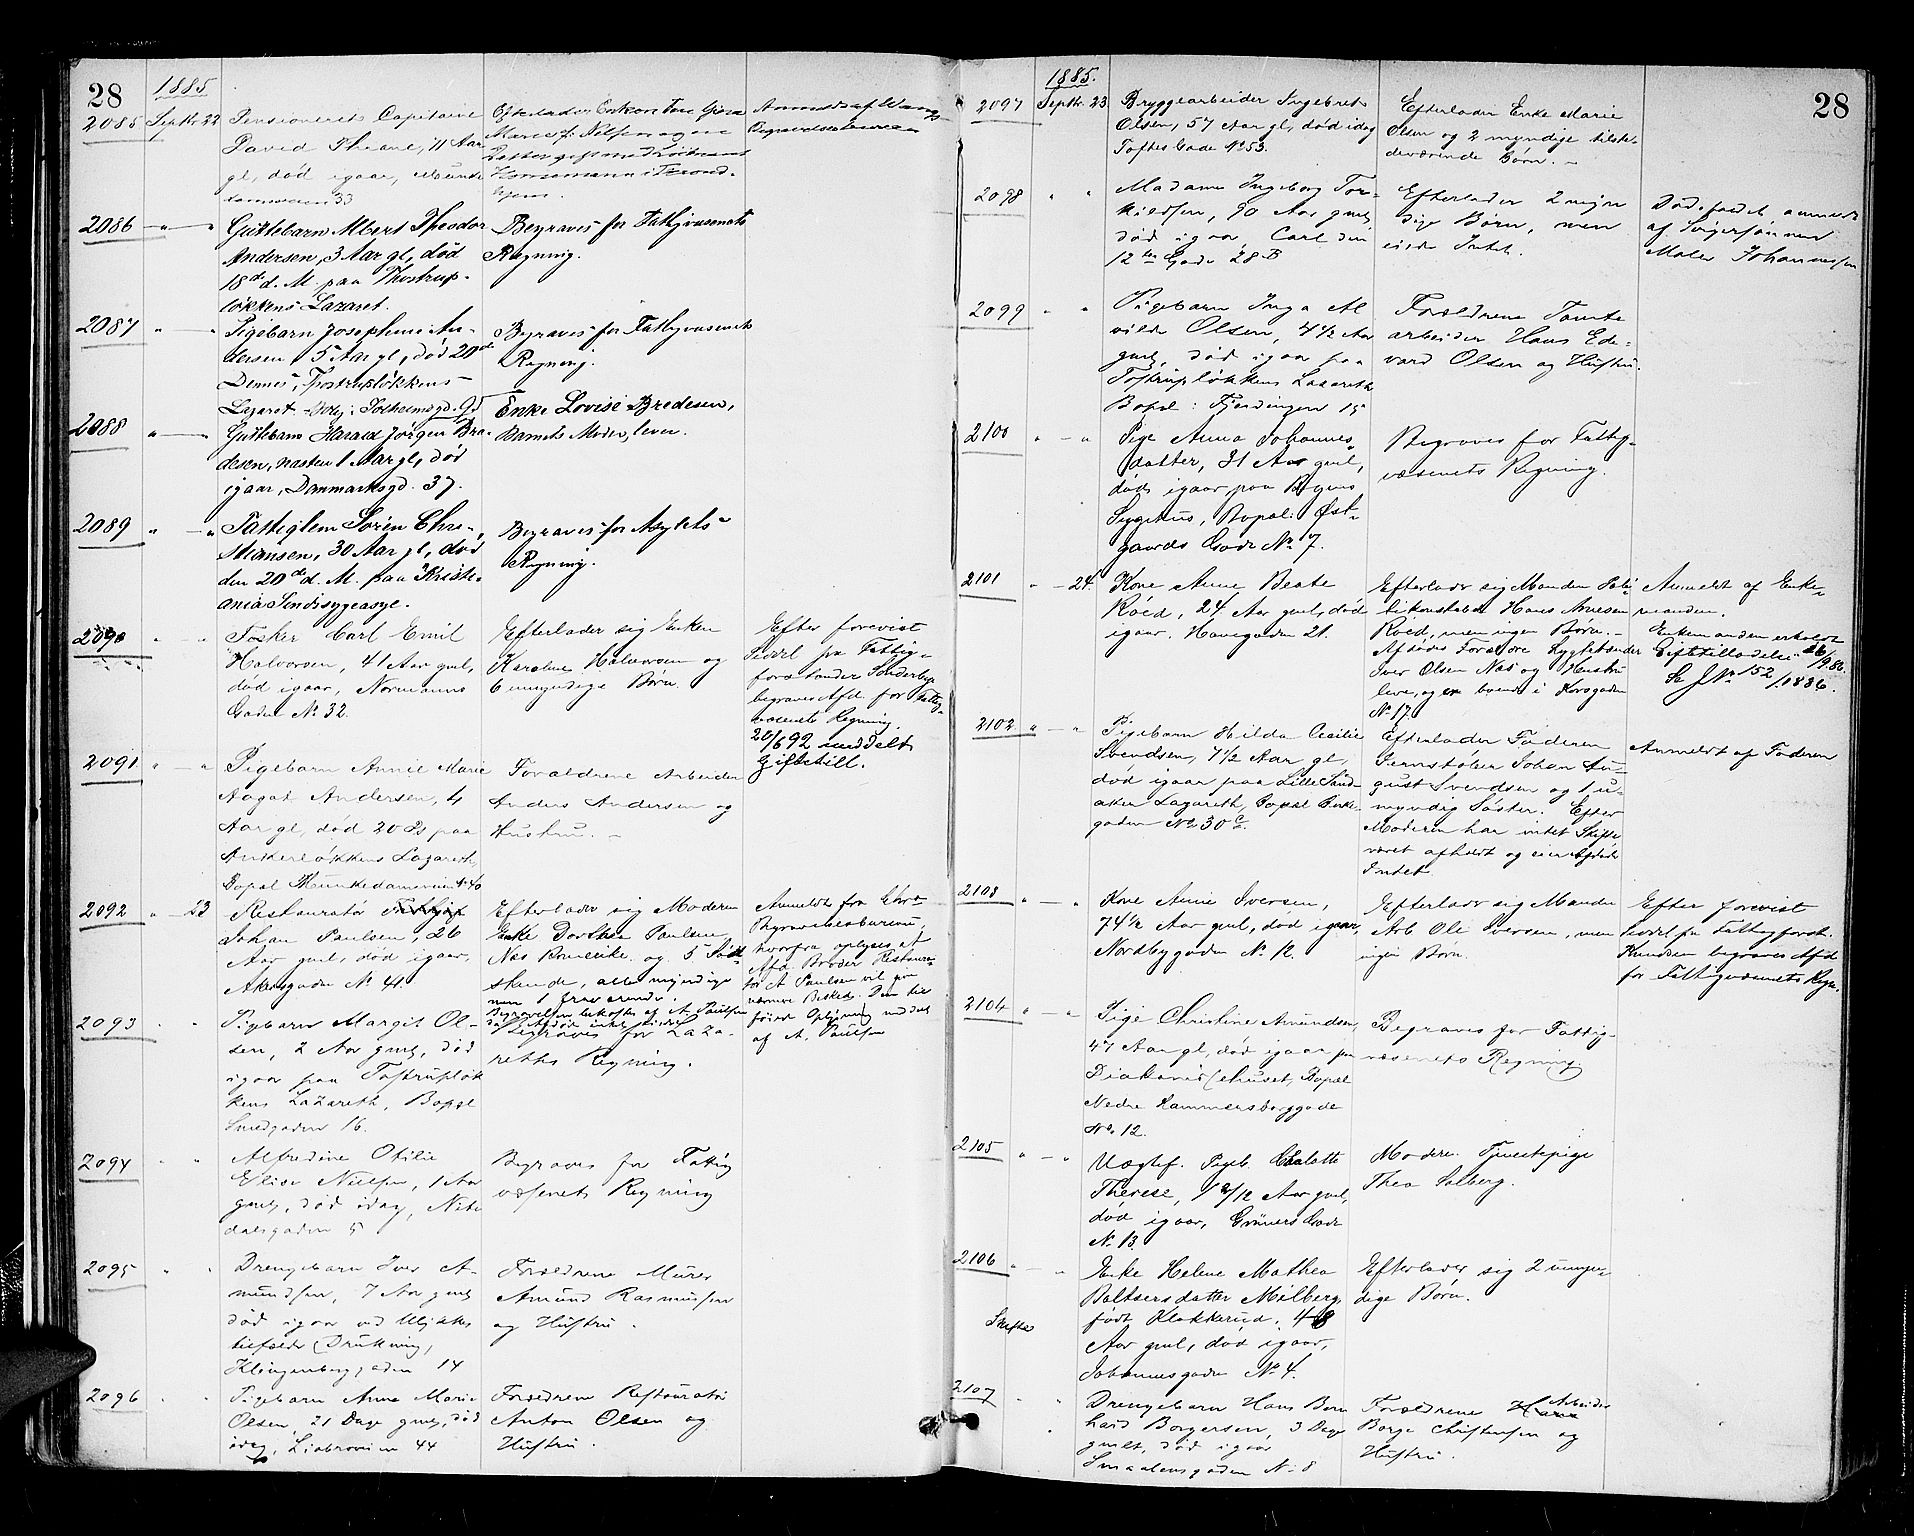 28
1885
2085
Septbr 22
Pensioneret Capitaine
David Thrane, 71 Aar
gl, død igaar, Munke
damsveien 33
Efterlader Enken
Marie f. Nilsen og en
Datter gift med
i Trond-
hjem.
Anmeldt af
Begravelsesbureau
2086 " — "
Guttebarn Albert Theodor
Andersen, 3 Aar gl, død
18de d. M. paa Thostrup-
løkkens Lazaret.
Begraves for Fattigvæsenets
Regning.
2087 " "
Pigebarn Josephine An-
dersen 5 Aar gl, død 20de
Dennes, Thostrupløkkens
Lazaret
Begraves for Fattigvæsenets
Regning.
2088 " — "
Guttebarn Harald Jørgen Bre-
desen, næsten 1 Aar gl, død
igaar, Danmarksgd. 37.
Enke Lovise Bredesen,
Barnets Moder, lever.
2089 " — "
Fattiglem Søren Chri-
stiansen, 30 Aar gl, død
den 20de d. M. paa Kristi-
ania Sindssygeasyl.
Begraves for Asylets
Regning.
2090 " "
Tosker Carl Emil
Halvorsen, 41 Aar gml,
død igaar, Normanns
Gade No 32.
Efterlader sig Enken
Karoline Halvorsen og
6 umyndige Børn.
Efter forevist
Seddel fra Fattig-
forstander Sønderbye
begraves Afd. for Fattig-
væsenets Regning.
20/6 92 meddelt
Giftetill.
2091 " — "
Pigebarn Annie Marie
Aagot Andersen, 4
Aar gl, død 20 ds paa
Ankerløkkens Lazareth,
Bopæl Munkedamsveien No 40
Forældrene Arbeider
Anders Andersen og
Hustru. –
2092 " — 23
Restauratør
Johan Paulsen, 26
Aar gml, død igaar,
Akersgaden No 41.
Efterlader sig Moderen
Enke Dorthea Paulsen,
Næs Romerike. og 5 Sød-
skende, alle myndige
men 1 fraværende.
Begravelsen bekostes af A. Paulsen
da Afdøde intet eiede
Anmeldt fra Chra
Begravelsesbureau,
hvorfra oplyses at
Afd. Broder Restaura-
tør A Paulsen vil give
nærmere Besked. Den til
føiede Oplysning meddelt
af A. Paulsen
2093 " "
Pigebarn Margit Ol-
sen, 2 Aar gml, død
igaar paa Tostrupløk
kens Lazareth, Bopæl
Smedgaden 16.
Begraves for Laza-
reths Regning.
2094 " "
Alfredine Otilie
Elise Nielsen, 1 Aar
gml, død idag, Nite
dalsgaden 5
Begraves for Fattig
væsenets Regning
2095 " "
Drengebarn Iver A-
mundsen, 7 Aar gml
død igaar ved Ulykkes
tilfælde (Drukning,
Klingenberggaden 14
Forældrene Murer
Amund Rasmussen
og Hustru.
2096 " "
Pigebarn Anna Marie
Olsen, 21 Dage gml, død
idag, Liabroveien 44
Forældrene Restauratør
Anton Olsen og
Hustru.
28
1885.
2097
Septbr. 23
Bryggearbeider Ingebret
Olsen, 57 Aar gl, død idag
Toftes Gade No 53.
Efterlader Enke Marie
Olsen og 2 myndige tilste-
deværende Børn. –
2098 " "
Madame Ingeborg Tor-
kildsen, 90 Aar gml,
død igaar Carl den
12te Gade 28 B
Efterlader 2 myn
dige Børn, men
eiede Intet.
Dødsfaldet anmeldt
af Svigersønnen
Maler Johannessen
2099 " "
Pigebarn Inga Al
vilde Olsen, 4 1/2 Aar
gml, død igaar paa
Tostrupløkkens Lazareth
Bopæl: Fjerdingen 15
Forældrene Tomte
arbeider Hans Ed-
vard Olsen og Hustru.
2100 " — "
Pige Anna Johannes
datter, 31 Aar gml,
død igaar paa Byens
Sygehus, Bopæl: Øst-
gaards Gade No 7.
Begraves for Fattig-
væsenets Regning.
2101 " — 24.
Kone Anne Beate
Röed, 24 Aar gml, død
igaar. Hansgaden 21.
Efterlader sig Manden Poli-
tikonstabel Hans Arnesen
Röed, men ingen Børn. –
Afdødes Forældre Lygtetænder
Iver Olsen Næs og Hustru
lever, og er boende i Korsgaden
No 17.
Anmeldt af Enke-
manden.
Enkemanden erholdt
Giftetilladelse 26/9 86.
Se J No 152/1886.
2102 " — "
Pigebarn Hilda Cecilie
Svendsen, 7 1/2 Aar gl,
død igaar paa Lille Sand
aker Lazareth, Bopæl Birke-
gaden No 30 c.
Efterlader Faderen
Jernstøber Johan Au-
gust Svendsen og 1 u-
myndig Søster. Efter
Moderen har intet Skifte
været afholdt og eier Afdøde
Intet.
Anmeldt af Faderen
2103 " — "
Kone Anne Iversen,
74 1/2 Aar gml, død igaar,
Nordbygaden No 12.
Efterlader sig Manden
Arb Ole Iversen, men
ingen Børn.
Efter forevist
Seddel fra Fattigforst.
Knudsen begraves Afd.
for Fattigvæsenets Regn.
2104 " — "
Pige Christine Amundsen,
47 Aar gl, død igaar paa
Diakonissehuset, Bopæl
Nedre Hammersborggade
No. 12.
Begraves for Fattig-
væsenets Regning
2105 " — "
Uægtef. Pigeb. Charlotte
Therese, 1 2/12 Aar gml,
død igaar, Grüners Gade
No 13.
Moder: Tjenestepige
Thea Solberg.
2106 " — "
Skifte
Enke Helene Mathea
Baltsersdatter Milberg,
født Klokkerud, 48
Aar gml, død igaar,
Johannesgaden No 4.
Efterlader sig 2 umyn-
dige Børn.
2107 " "
Drengebarn Hans Bern
hard Borgersen, 3 Dage
gmlt, død igaar
Smaalensgaden No 8
Forældrene Arbeider
Borge Christensen og
Hustru.